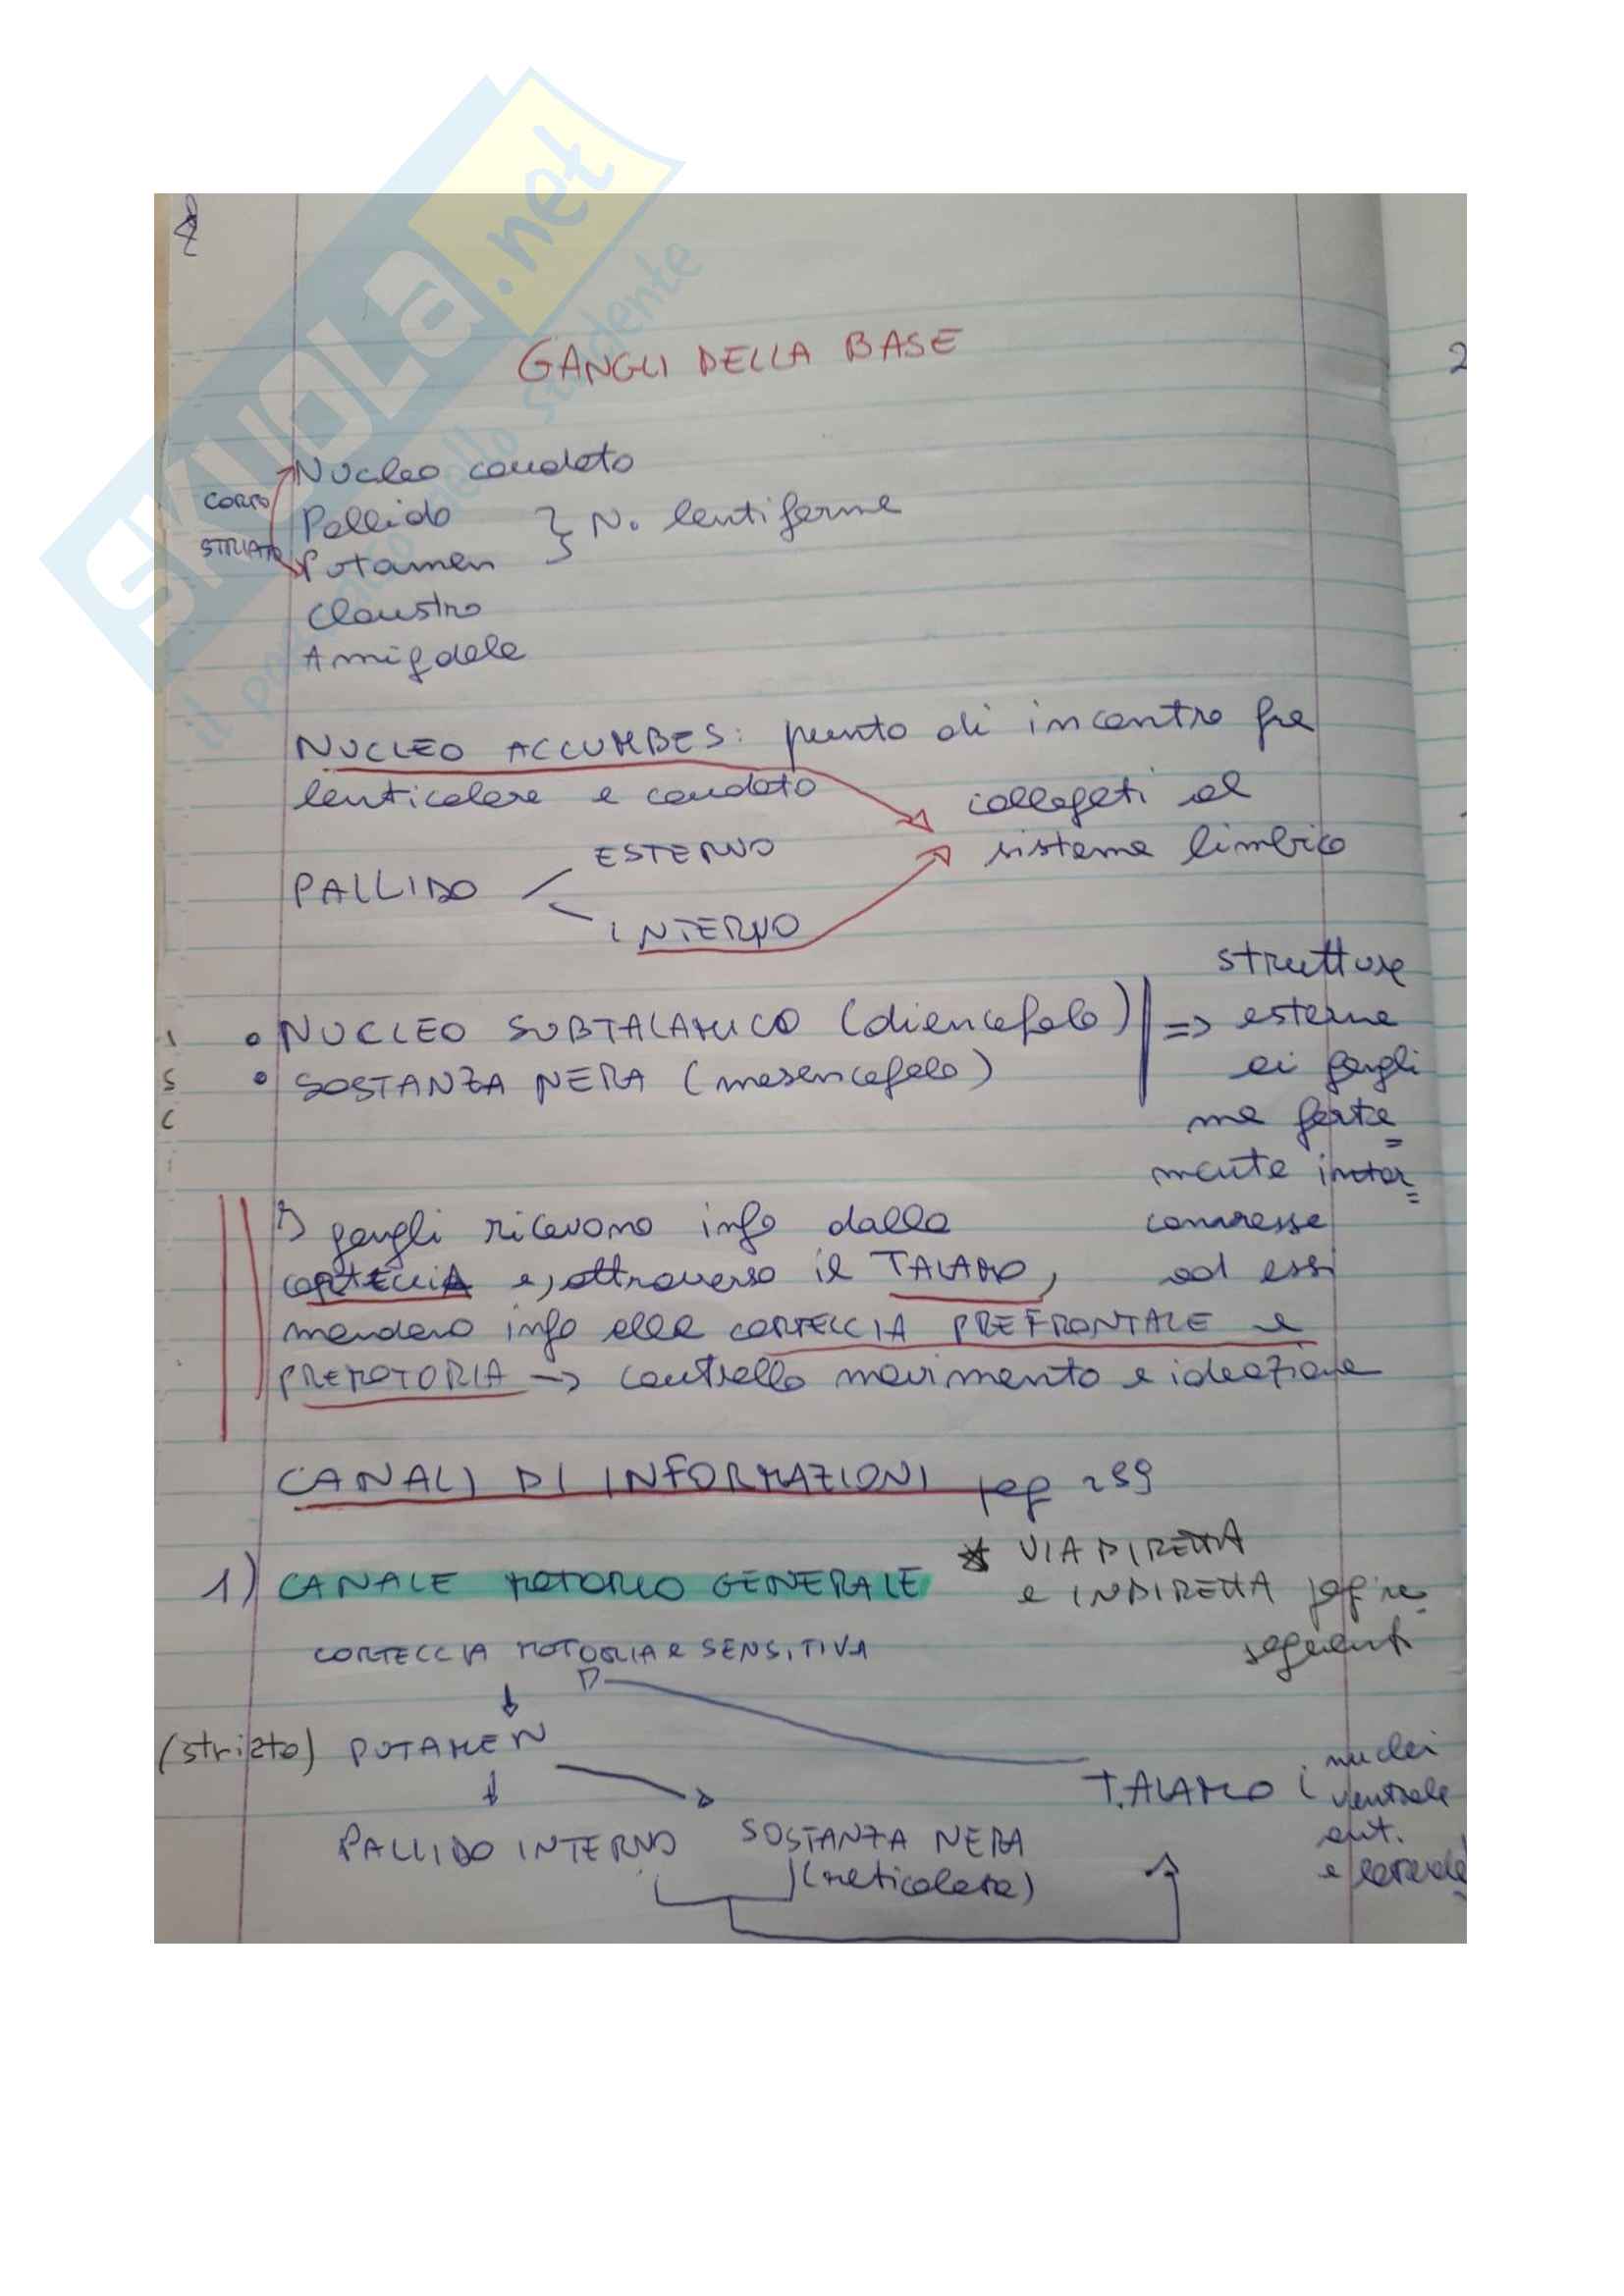 SKUOLA.net
il portale dello studente
GANGLI DELLA BASE
2
CORPO STRIATO
Nucleo caudato
Pallido
Putamen
} N. lentiforme
Claustro
Amigdala
NUCLEO ACCUMBES: punto di incontro fra
lenticolare e caudato
collegati al
sistema limbico
PALLIDO
ESTERNO
INTERNO
• NUCLEO SUBTALAMICO (diencefalo)
• SOSTANZA NERA (mesencefalo)
=> strutture
esterne
ai gangli
ma forte=
mente inter=
connesse
ad essi
I gangli ricevono info dalla
CORTECCIA e, attraverso il TALAMO,
mandano info alla CORTECCIA PREFRONTALE e
PREMOTORIA -> controllo movimento e ideazione
CANALI DI INFORMAZIONI pag 259
1) CANALE MOTORIO GENERALE
* VIA DIRETTA
e INDIRETTA pagine
seguenti
CORTECCIA MOTORIA e SENSITIVA
(striato) PUTAMEN
TALAMO
nuclei
ventrale
ant.
e laterale
PALLIDO INTERNO
SOSTANZA NERA
(reticolata)